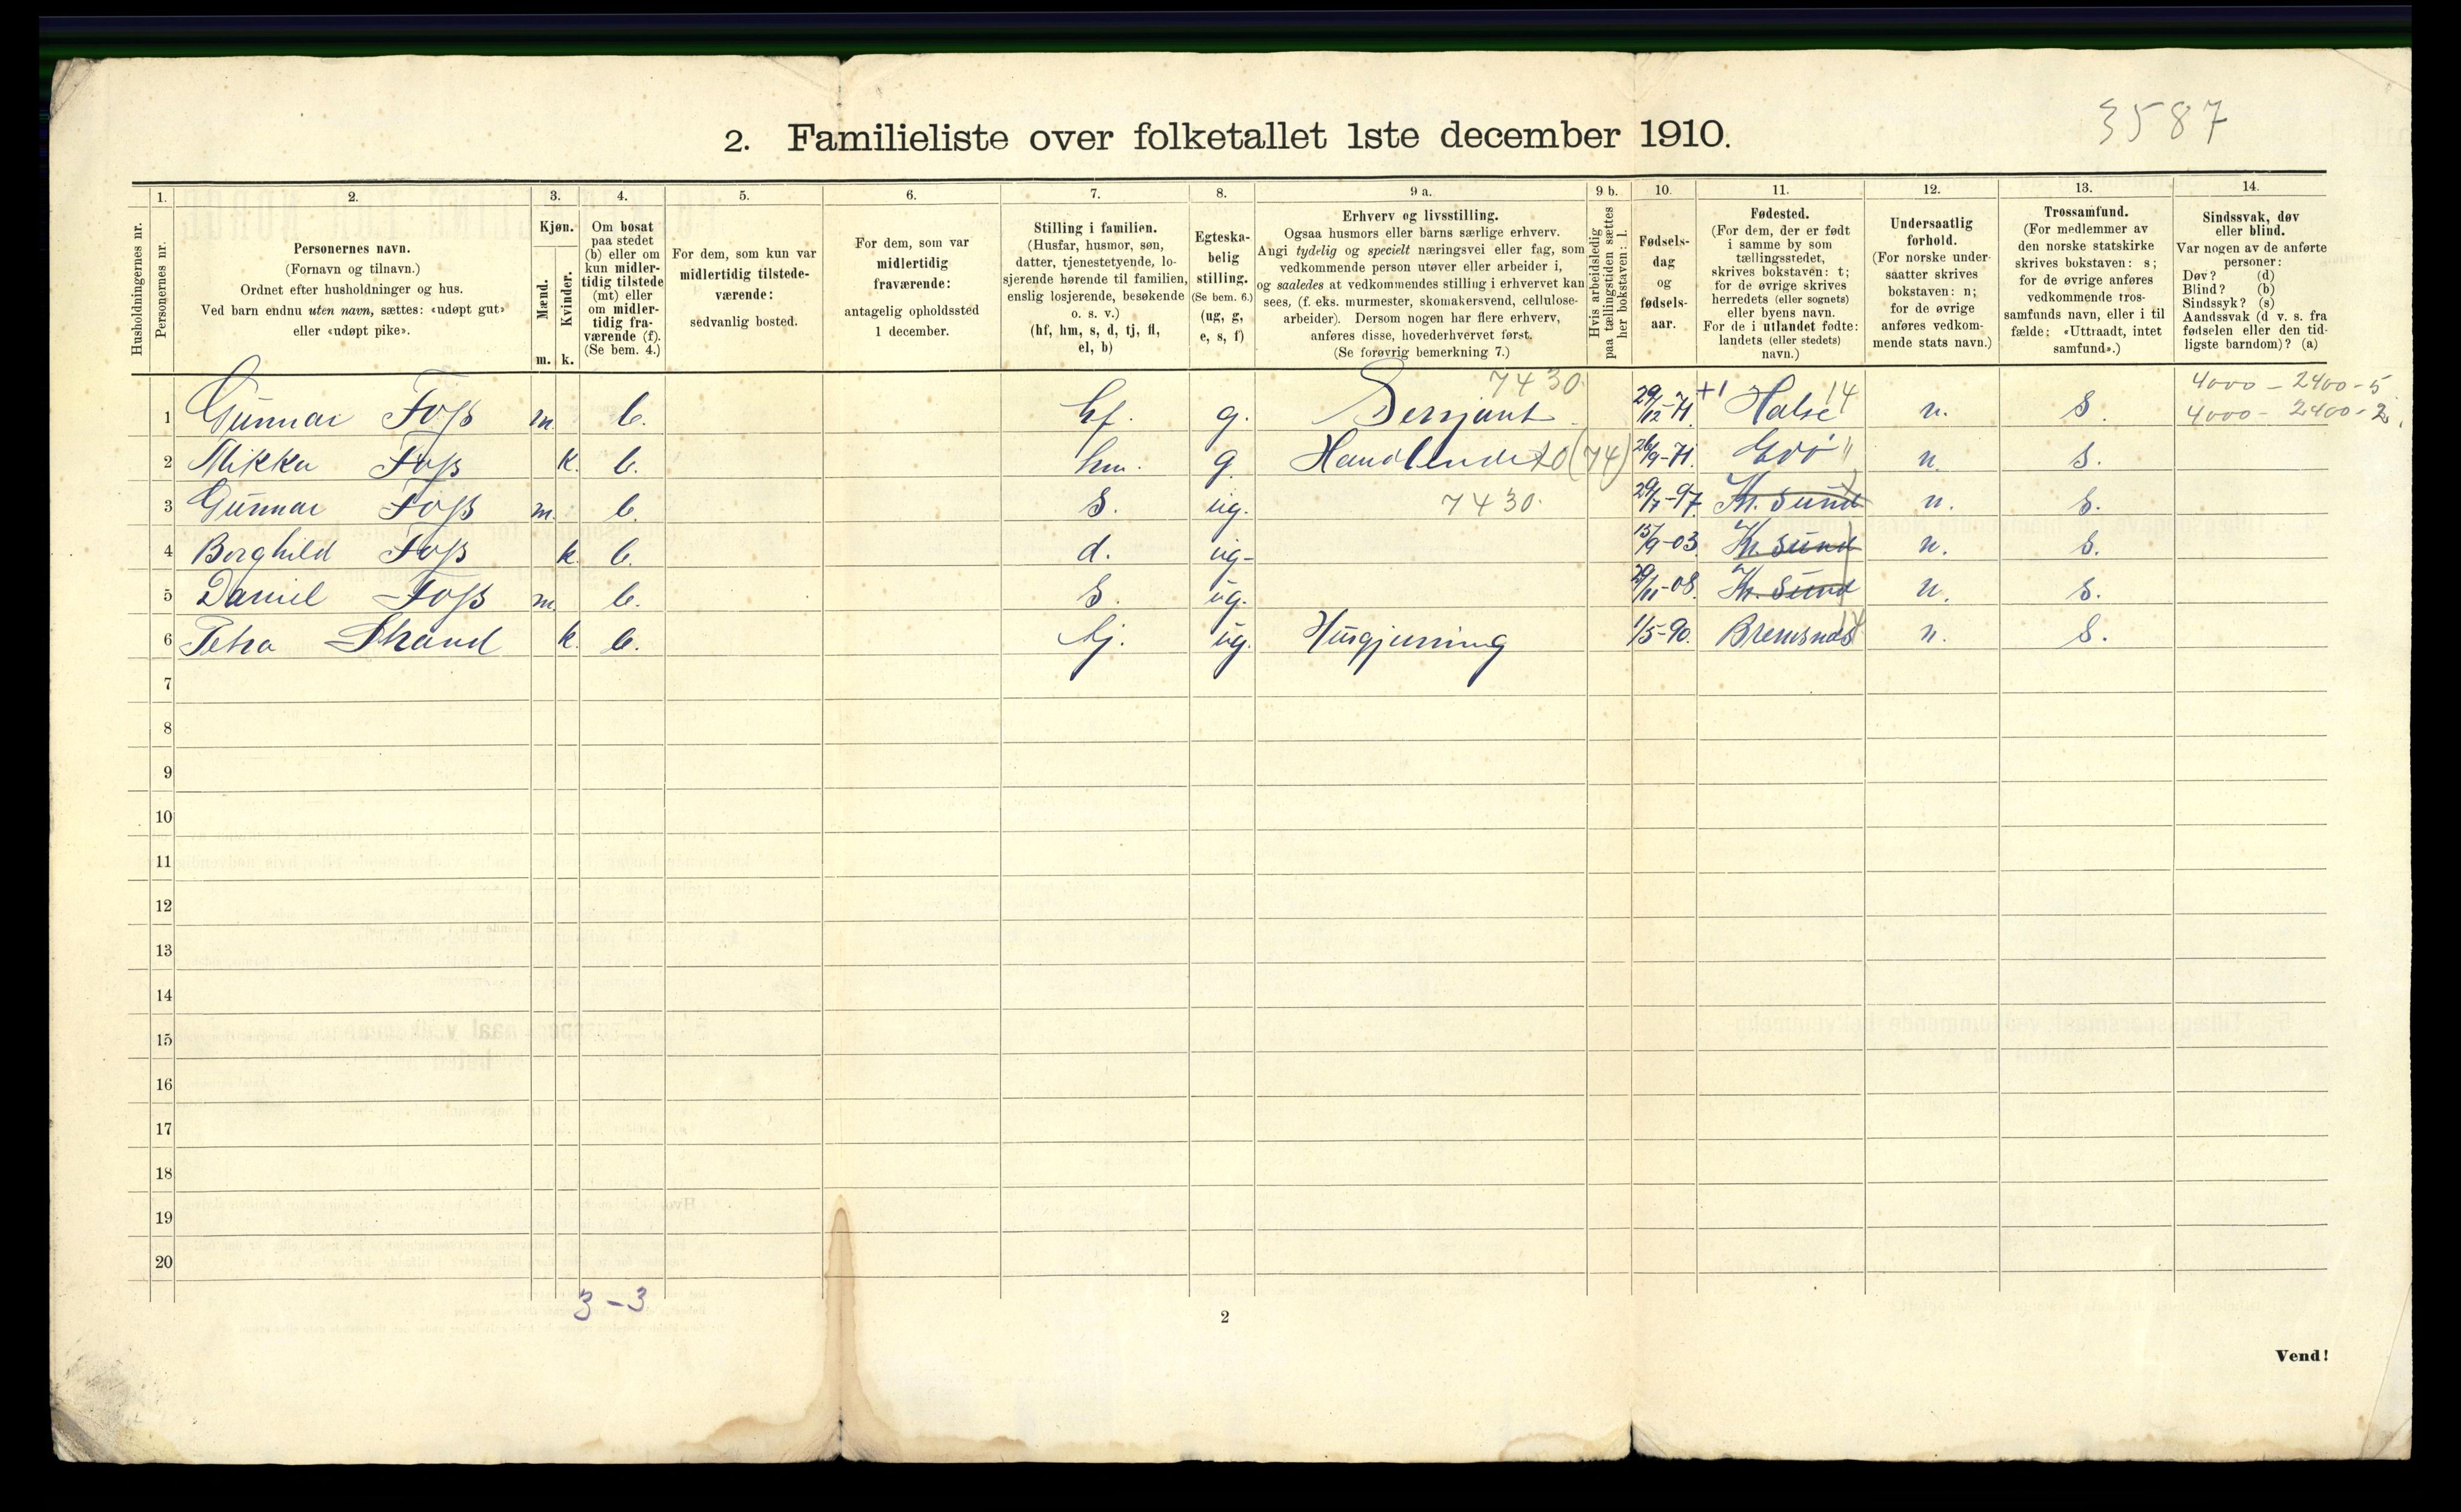 3587
2. Familieliste over folketallet 1ste december 1910.
Husholdningernes nr.
1.
Personernes nr.
2.
Personernes navn.
(Fornavn og tilnavn.)
Ordnet efter husholdninger og hus.
Ved barn endnu uten navn, sættes: «udøpt gut»
eller «udøpt pike».
3.
Kjøn.
Mænd.
Kvinder.
m. k.
4.
Om bosat
paa stedet
(b) eller om
kun midler-
tidig tilstede
(mt) eller
om midler-
tidig fra-
værende (f).
(Se bem. 4.)
5.
For dem, som kun var
midlertidig tilstede-
værende:
sedvanlig bosted.
6.
For dem, som var
midlertidig
fraværende:
antagelig opholdssted
1 december.
7.
Stilling i familien.
(Husfar, husmor, søn,
datter, tjenestetyende, lo-
sjerende hørende til familien,
enslig losjerende, besøkende
o. s. v.)
(hf, hm, s, d, tj, fl,
el, b)
8.
Egteska-
belig
stilling.
(Se bem. 6.)
(ug, g,
e, s, f)
9 a.
Erhverv og livsstilling.
Ogsaa husmors eller barns særlige erhverv.
Angi tydelig og specielt næringsvei eller fag, som
vedkommende person utøver eller arbeider i,
og saaledes at vedkommendes stilling i erhvervet kan
sees, (f. eks. murmester, skomakersvend, cellulose-
arbeider). Dersom nogen har flere erhverv,
anføres disse, hovederhvervet først.
(Se forøvrig bemerkning 7.)
9 b.
Hvis arbeidsledig
paa tællingstiden sættes
her bokstaven: l.
10.
Fødsels-
dag
og
fødsels-
aar.
11.
Fødested.
(For dem, der er født
i samme by som
tællingsstedet,
skrives bokstaven: t;
for de øvrige skrives
herredets (eller sognets)
eller byens navn.
For de i utlandet fødte:
landets (eller stedets)
navn.)
12.
Undersaatlig
forhold.
(For norske under-
saatter skrives
bokstaven: n;
for de øvrige
anføres vedkom-
mende stats navn.)
13.
Trossamfund.
(For medlemmer av
den norske statskirke
skrives bokstaven: s;
for de øvrige anføres
vedkommende tros-
samfunds navn, eller i til
fælde: «Uttraadt, intet
samfund».)
14.
Sindssvak, døv
eller blind.
Var nogen av de anførte
personer:
Døv? (d)
Blind? (b)
Sindssyk? (s)
Aandssvak (d v. s. fra
fødselen eller den tid-
ligste barndom)? (a)
7430 4000 – 2400 – 5
1 Gunnar Foss m. b. hf. g. Serjant 29/12-71 +1 Halse 14 n. s. 4000 – 2400 – 2.
2 Mikka Foss k. b. hm. g. 26/9-71. n. s.
3 Gunnar Foss m. b. s. ug. 7430. 29/7-97. Kr. Sund n. s.
4 Borghild Foss k. b. d. ug. 15/9-03. Kr. Sund n. s.
5 Daniel Foss m. b. s. ug. Kr. Sund n. s.
6 Petra Strand k. b. tj. ug. Husgjerning 1/5-90. Bremsnæs 14 n. s.
7
8
9
10
11
12
13
14
15
16
17
18
19
20
3 – 3
2
Vend!